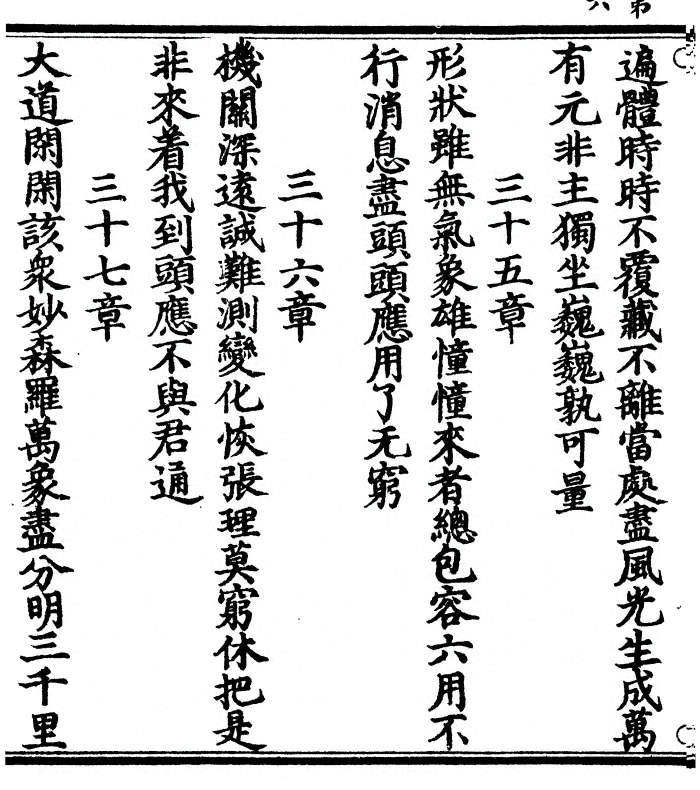 遍體時時不覆藏不離當處盡風光生成萬
有元非主獨坐巍巍孰可量
三十五章
形狀雖無氣象雄憧憧來者總包容六用不
行消息盡頭頭應用了无窮
三十六章
機關深遠誠難測變化恢張理莫窮休把是
非來着我到頭應不與君通
三十七章
大道閑閑該衆妙森羅萬象盡分明三千里